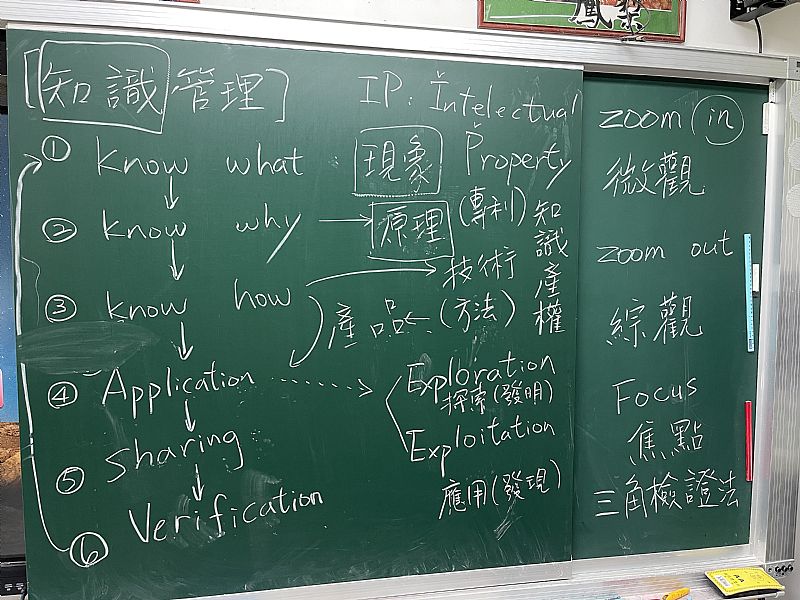 [知識管理]
IP: Intelectual
Property
① know what: 現象
② know why → 原理 (專利)
知識產權
③ know how → 技術
產品 ← (方法)
④ Application ⋯⋯→ Exploration
探索(發明)
Exploitation
應用(發現)
⑤ Sharing
⑥ Verification
zoom in
微觀
zoom out
綜觀
Focus
焦點
三角檢證法